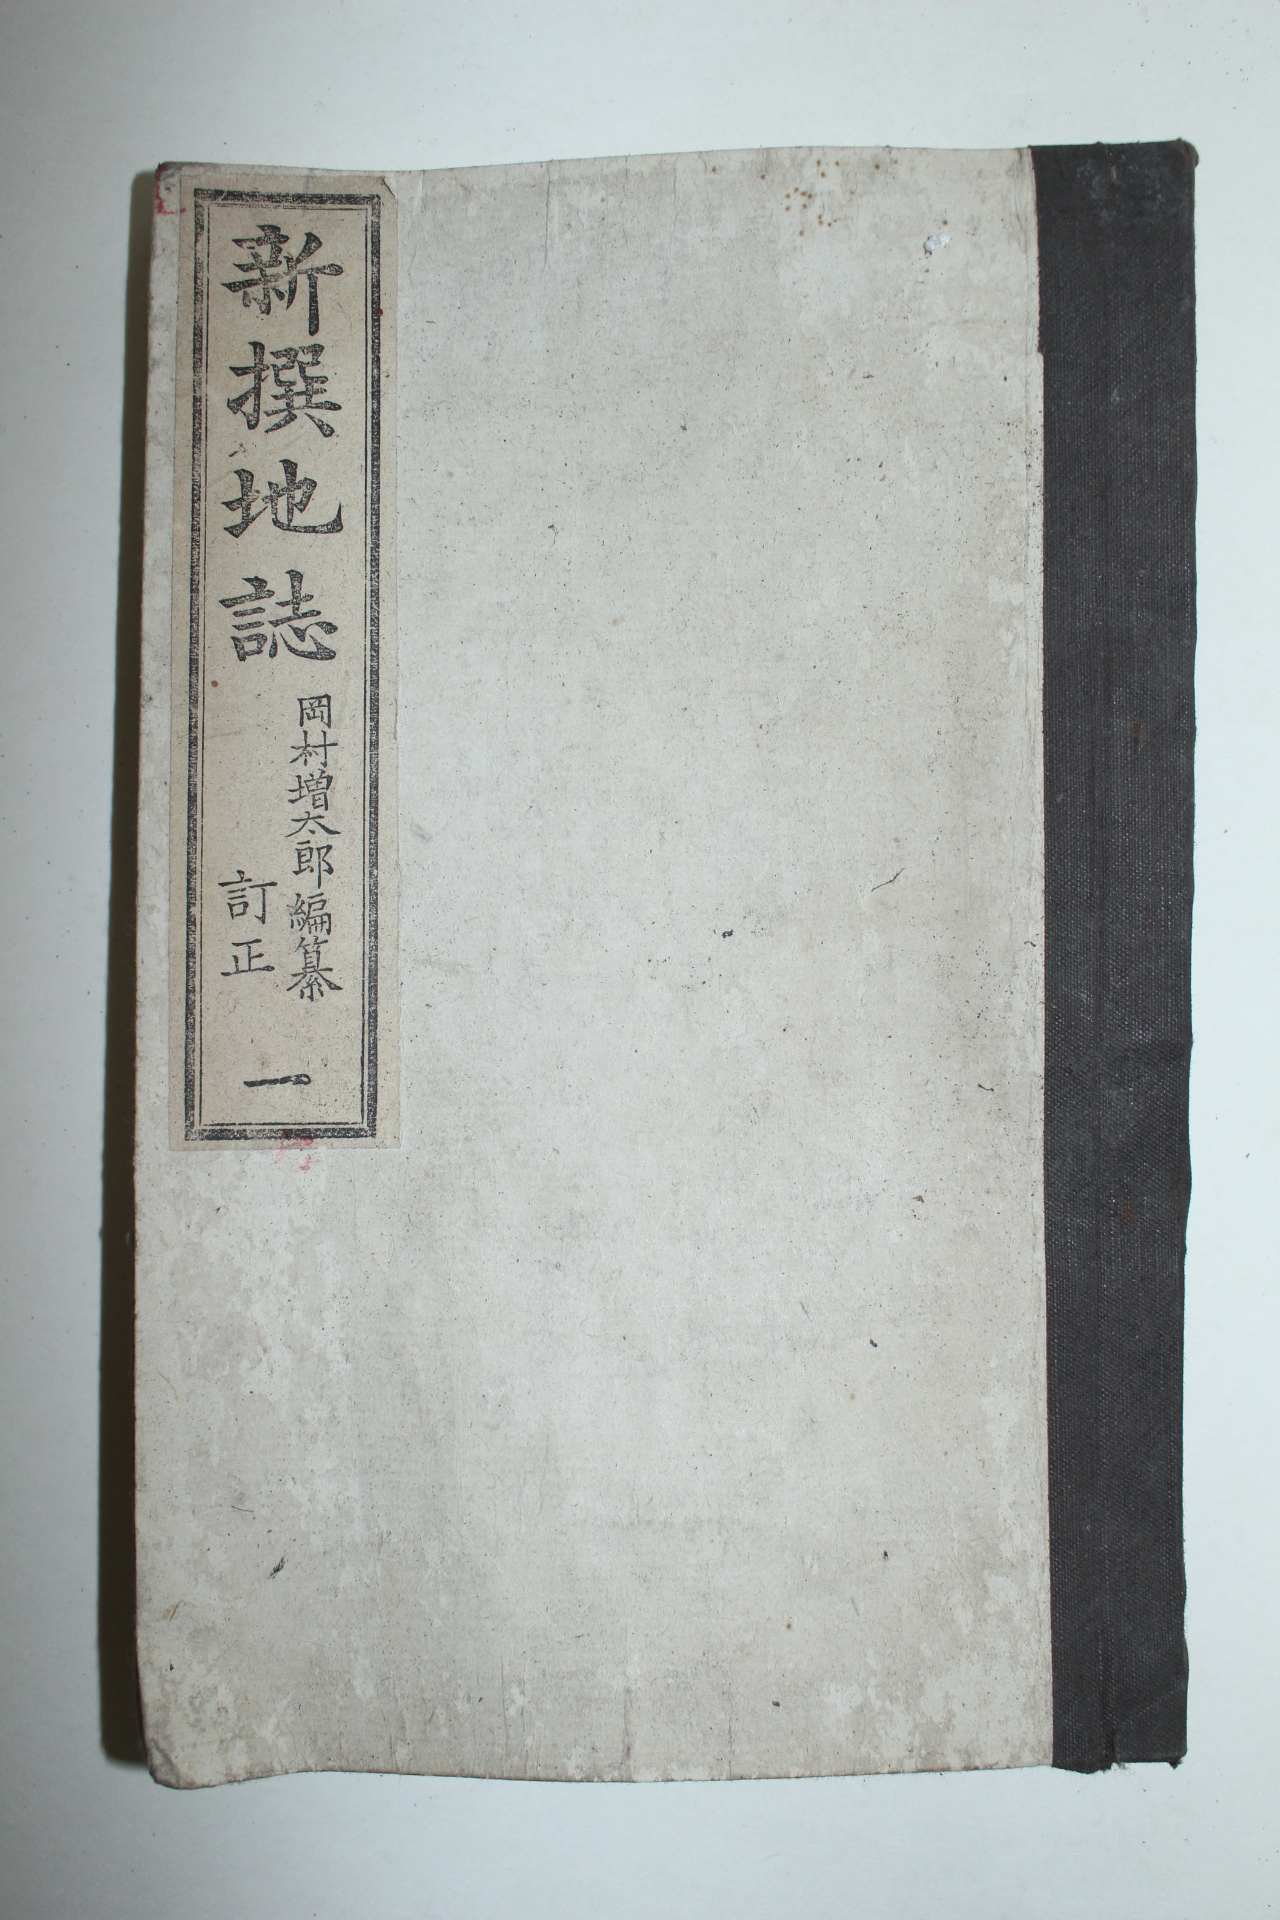 新撰地誌
岡村増太郎編纂
訂正
一